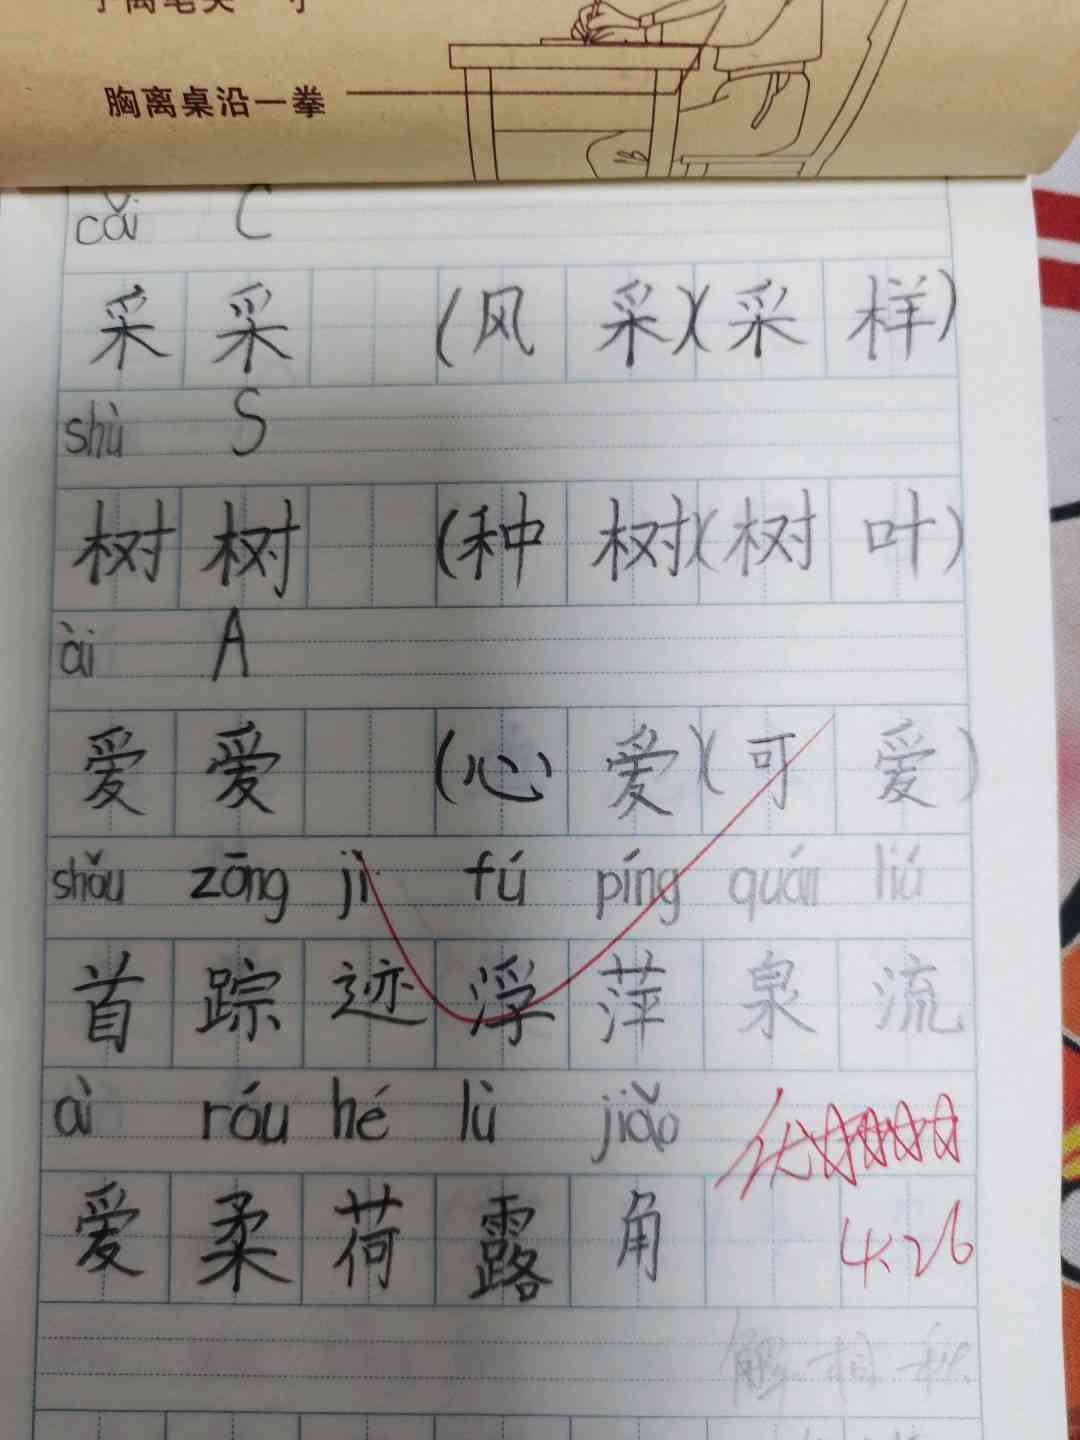 手离笔尖一寸
胸离桌沿一拳
cǎi C
采 采 (风 采)(采 样)
shù S
树 树 (种 树)(树 叶)
ài A
爱 爱 (心 爱)(可 爱)
shǒu zōng jì fú píng quán liú
首 踪 迹 浮 萍 泉 流
ài róu hé lù jiǎo
爱 柔 荷 露 角
优
4.26